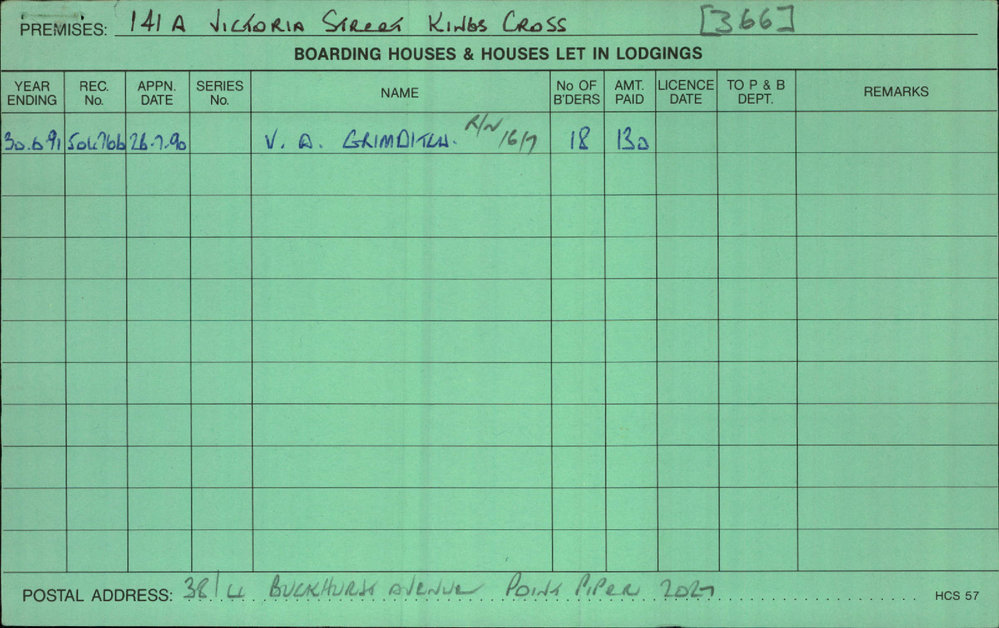 PREMISES: 141A VICTORIA STREET KINGS CROSS [366]
BOARDING HOUSES & HOUSES LET IN LODGINGS
YEAR ENDING REC. No. APPN. DATE SERIES No. NAME No OF B'DERS AMT. PAID LICENCE DATE TO P & B DEPT. REMARKS
30.6.91 504766 26.7.90 V. A. GRIMDITCH. R/N 16/7 18 130
POSTAL ADDRESS: 38/4 BUCKHURST AVENUE POINT PIPER 2027
HCS 57